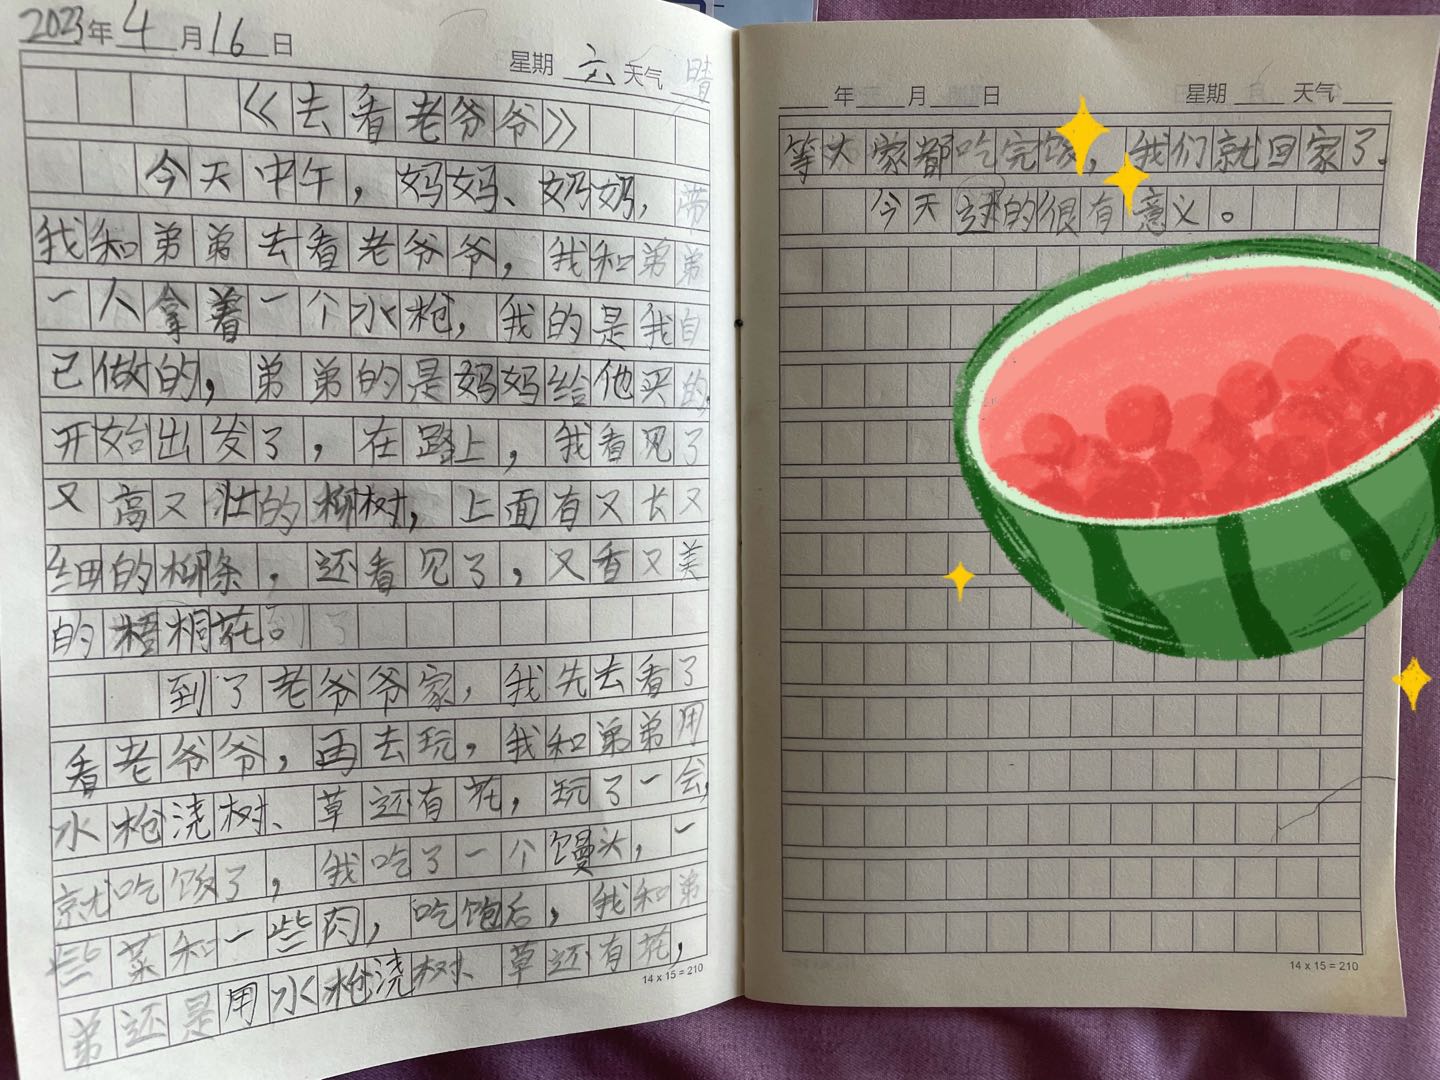 2023年4月16日 星期六天气晴
《去看老爷爷》
今天中午，妈妈、奶奶，带
我和弟弟去看老爷爷，我和弟弟
一人拿着一个水枪，我的是我自
己做的，弟弟的是妈妈给他买的，
开始出发了，在路上，我看见了
又高又壮的柳树，上面有又长又
细的柳条，还看见了，又香又美
的梧桐花。
到了老爷爷家，我先去看了
看老爷爷，再去玩，我和弟弟用
水枪浇树、草还有花，玩了一会，
就吃饭了，我吃了一个馒头，一
些菜和一些肉，吃饱后，我和弟
弟还是用水枪浇树、草还有花，
14 x 15 = 210
年 月 日 星期 天气
等大家都吃完饭，我们就回家了.
今天过的很有意义。
14 x 15 = 210